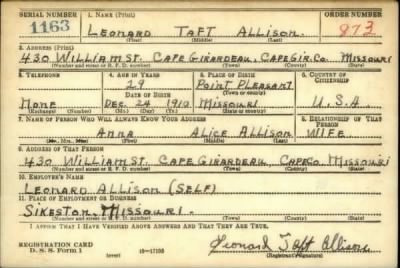 SERIAL NUMBER 1. NAME (Print) ORDER NUMBER
1163 LEONARD TAFT ALLISON. 873
(First) (Middle) (Last)
2. ADDRESS (Print)
430 WILLIAM ST. CAPE GIRARDEAU, CAPE GIR. CO. MISSOURI
(Number and street or R. F. D. number) (Town) (County) (State)
3. TELEPHONE 4. AGE IN YEARS 5. PLACE OF BIRTH 6. COUNTRY OF CITIZENSHIP
29 POINT PLEASANT
DATE OF BIRTH (Town or county)
NONE DEC. 24 1910 MISSOURI U.S.A.
(Exchange) (Number) (Mo.) (Day) (Yr.) (State or country)
7. NAME OF PERSON WHO WILL ALWAYS KNOW YOUR ADDRESS 8. RELATIONSHIP OF THAT PERSON
ANNA ALICE ALLISON WIFE.
(Mr., Mrs., Miss) (First) (Middle) (Last)
9. ADDRESS OF THAT PERSON
430 WILLIAM ST. CAPE GIRARDEAU, CAPE CO. MISSOURI
(Number and street or R. F. D. number) (Town) (County) (State)
10. EMPLOYER'S NAME
LEONARD ALLISON (SELF)
11. PLACE OF EMPLOYMENT OR BUSINESS
SIKESTON, MISSOURI.
(Number and street or R. F. D. number) (Town) (County) (State)
I AFFIRM THAT I HAVE VERIFIED ABOVE ANSWERS AND THAT THEY ARE TRUE.
REGISTRATION CARD
D. S. S. Form 1 (over) 16—17105 Leonard Taft Allison
(Registrant's signature)